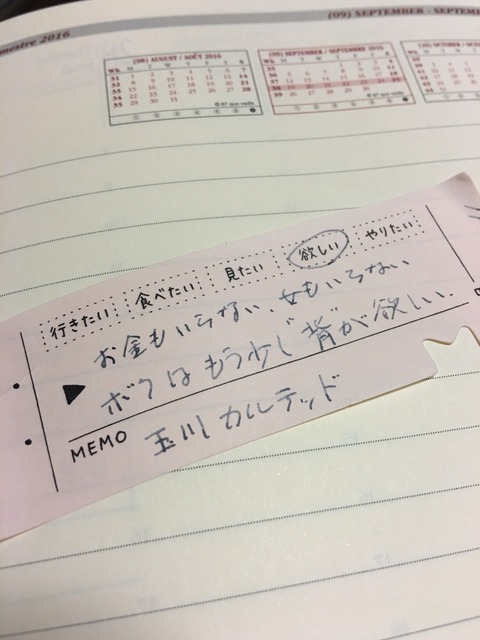 mestre 2016
(09) SEPTEMBER - SEPTEM
(08) AUGUST / AOÛT 2016
(09) SEPTEMBER / SEPTEMBRE 2016
(10) OCTOBER / OCT
行きたい 食べたい 見たい 欲しい やりたい
お金もいらない、女もいらない
▶ ボクはもう少し背が欲しい.
MEMO 玉川カルテッド